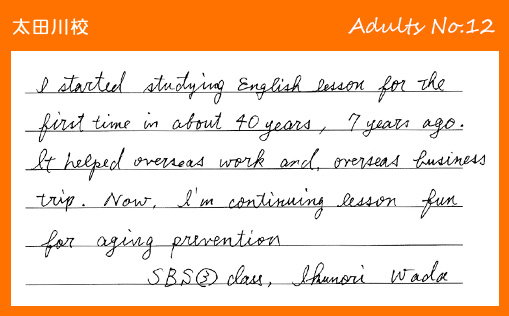 太田川校
Adults No.12
I started studying English lesson for the
first time in about 40 years, 7 years ago.
It helped overseas work and, overseas business
trip. Now, I'm continuing lesson fun
for aging prevention
SBS③ class, Ikunori Wada